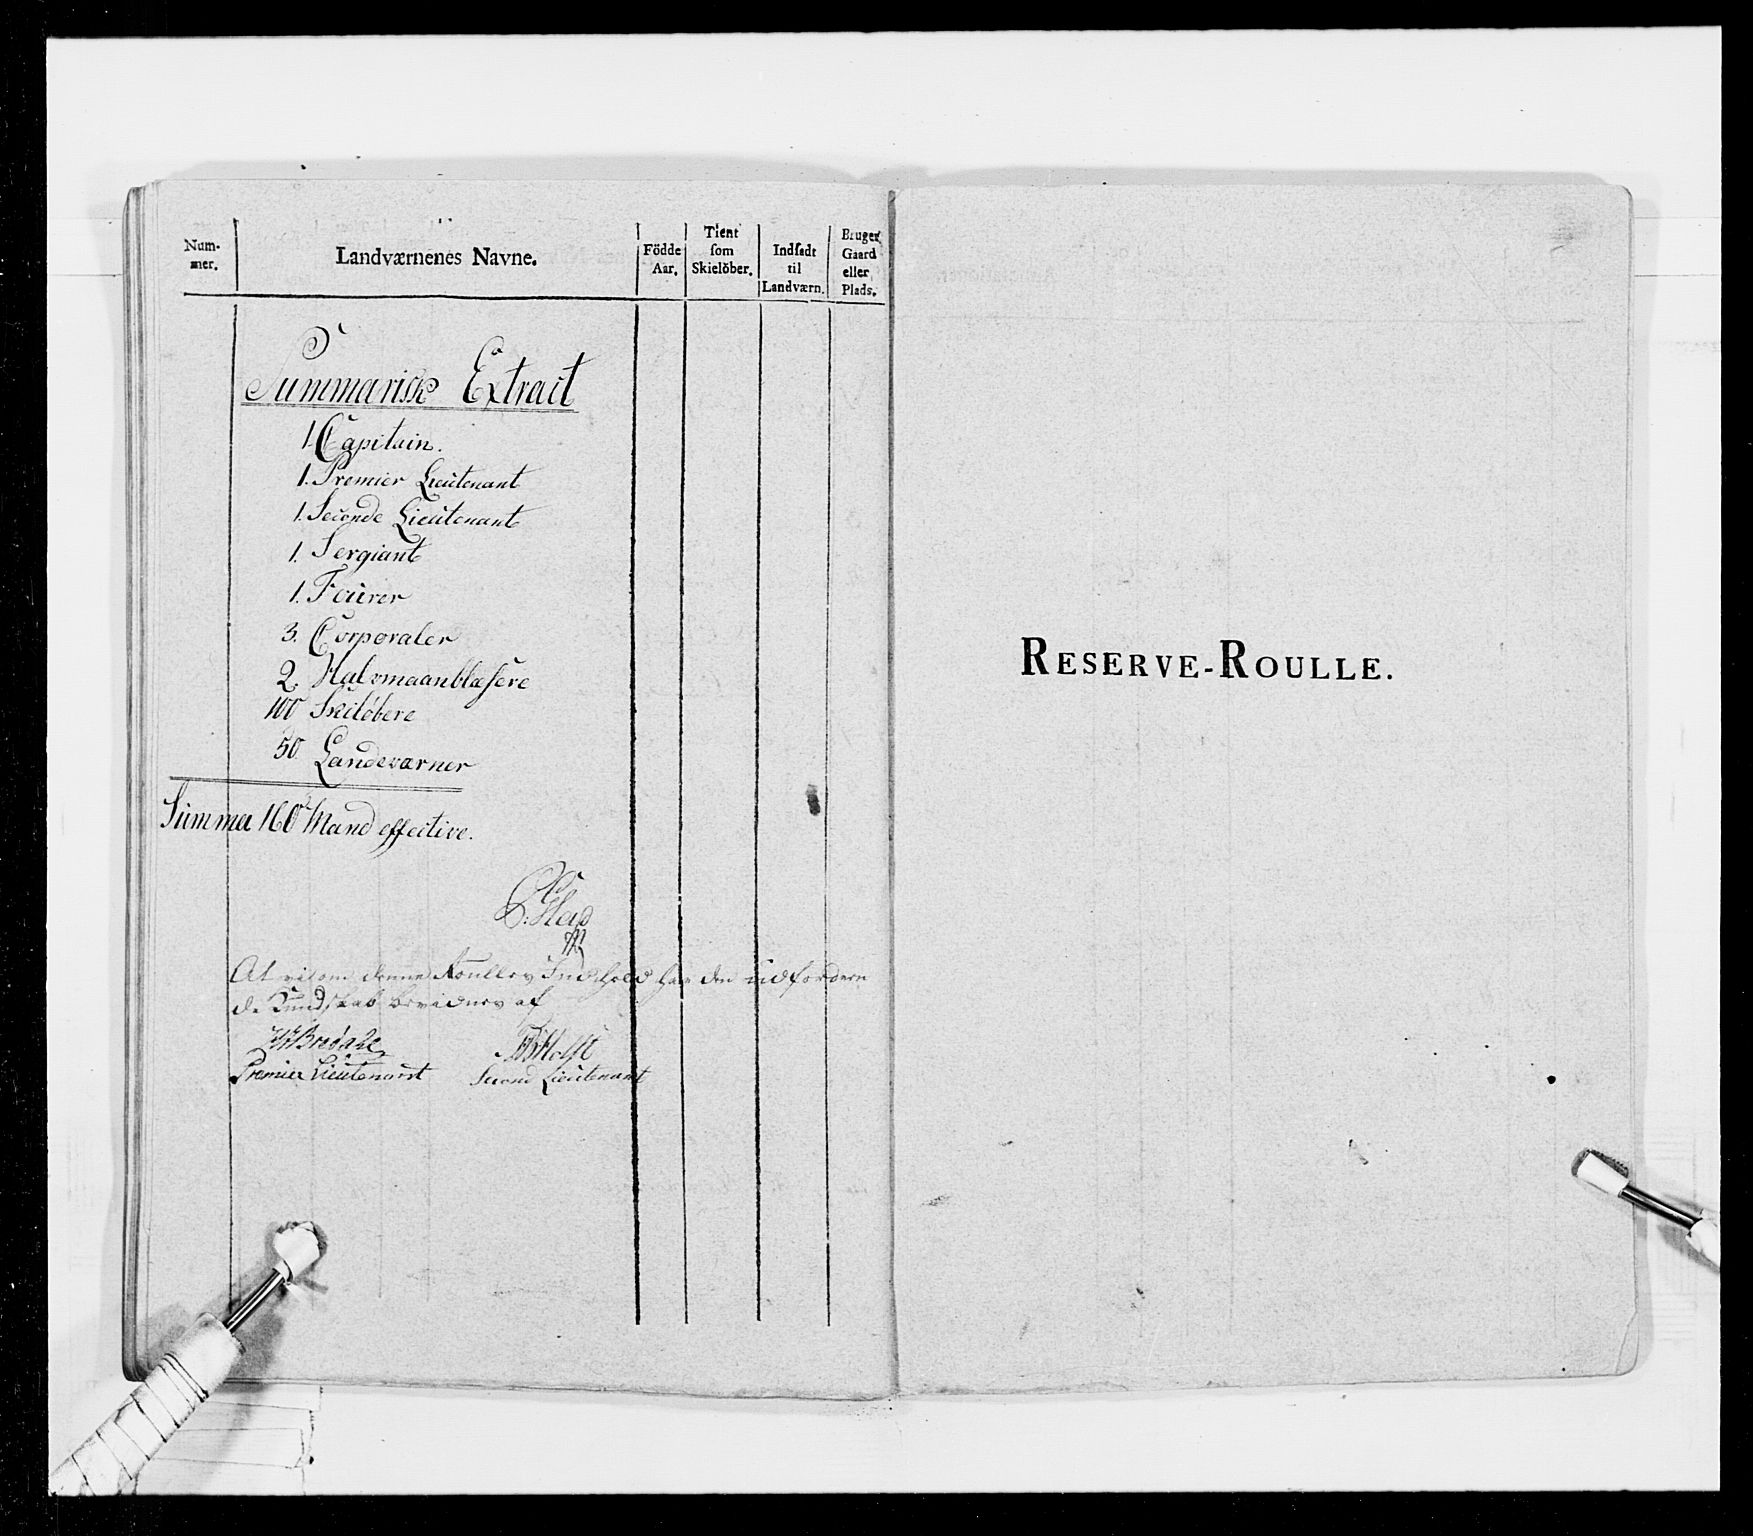 Num-
mer.
Landværnenes Navne.
Födde
Aar.
Tient
som
Skielöber.
Indsadt
til
Landværn.
Bruger
Gaard
eller
Plads.
Summarisk Extract
1. Capitain.
1. Premier Lieutenant
1. Seconde Lieutenant
1. Sergiant
1. Fourer
3. Corporaler
2. Halvmaanblæsere
100 Skiløbere
50. Landeværner
Summa 160 Mand effective.
At vi om denne Roulles Indhold har den udfordren
de Kundskab bevidnes af
Premier Lieutenant
Second Lieutenant
RESERVE-ROULLE.